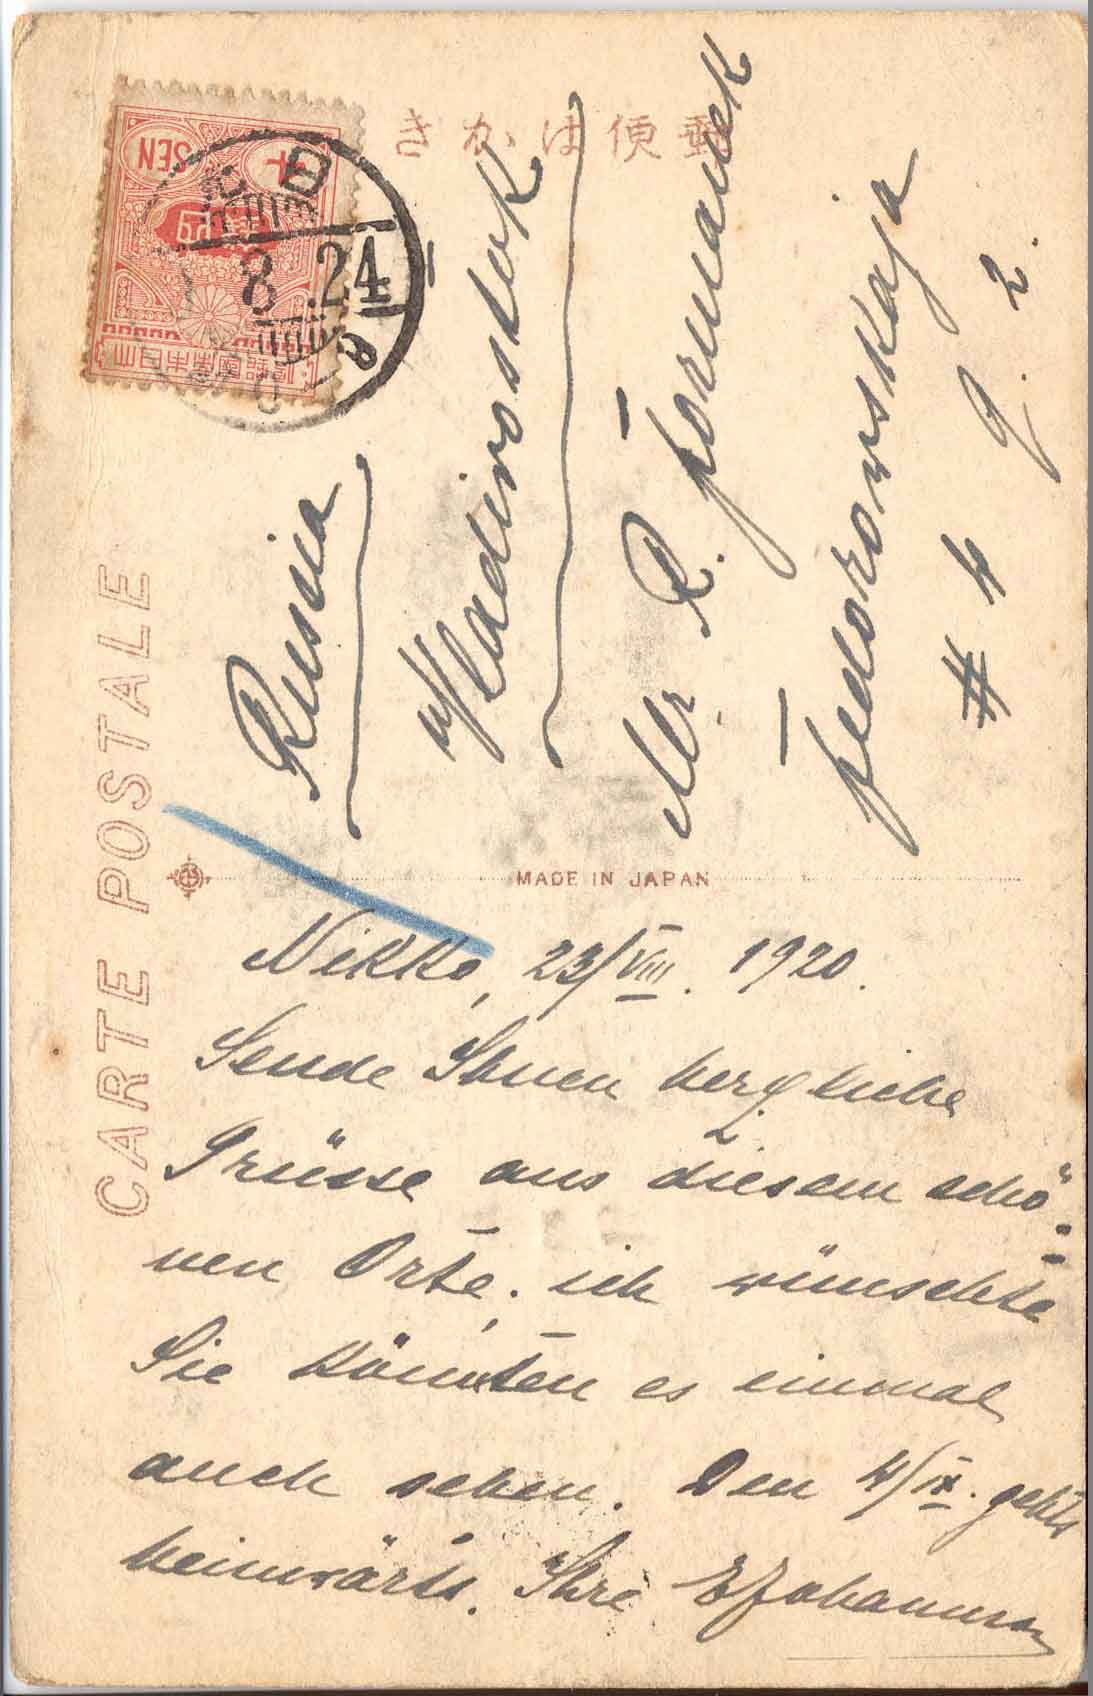 郵便はかき
CARTE POSTALE
SEN
8.24
Russia
Wladiwostock
Mr R. Formanek
Fedorowskaja
# 4 q. 2.
MADE IN JAPAN
Nikko, 23/VIII. 1920.
Sende Ihnen herzliche
Grüsse aus diesem schö-
nen Orte, ich wünschte
Sie könnten es einmal
auch sehen. Den 4/IX. gehts
heimwärts. Ihre EJohannson